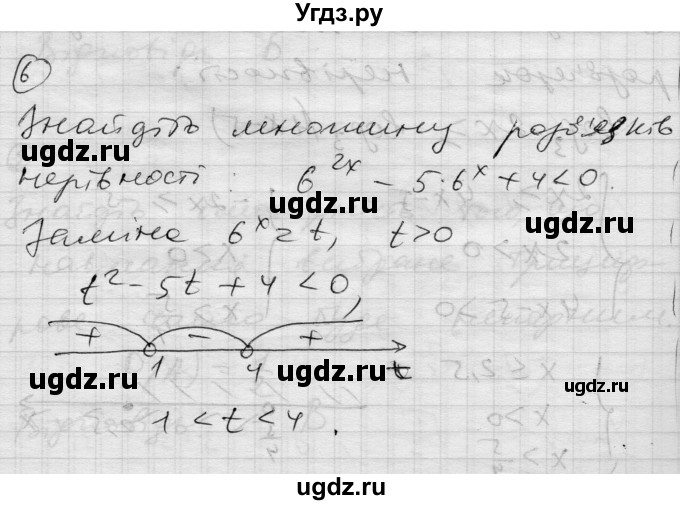 Угдз.ру
6
Знайдіть множину розв'язків
нерівності: 6^{2x} − 5·6^x + 4 < 0.
ugdz.ru ugdz.ru
ugdz.ru
Заміна 6^x = t, t > 0
ugdz.ru
t² − 5t + 4 < 0,
+ − +
1 4 t
ugdz.ru ugdz.ru ugdz.ru
1 < t < 4.
ugdz.ru
ugdz.ru